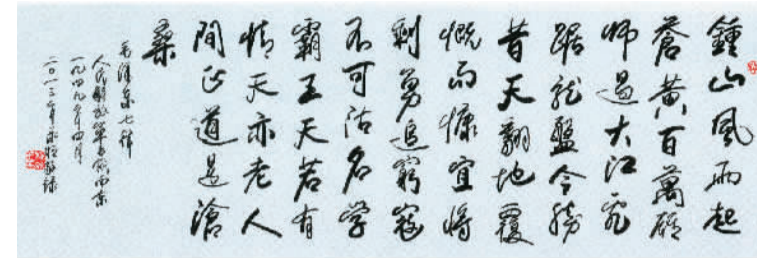 鍾山風雨起
蒼黃百萬雄
師過大江虎
踞龍盤今勝
昔天翻地覆
慨而慷宜將
剩勇追窮寇
不可沽名學
霸王天若有
情天亦老人
間正道是滄
桑
毛澤東七律
人民解放軍占領南京
一九四九年四月
二〇一三年